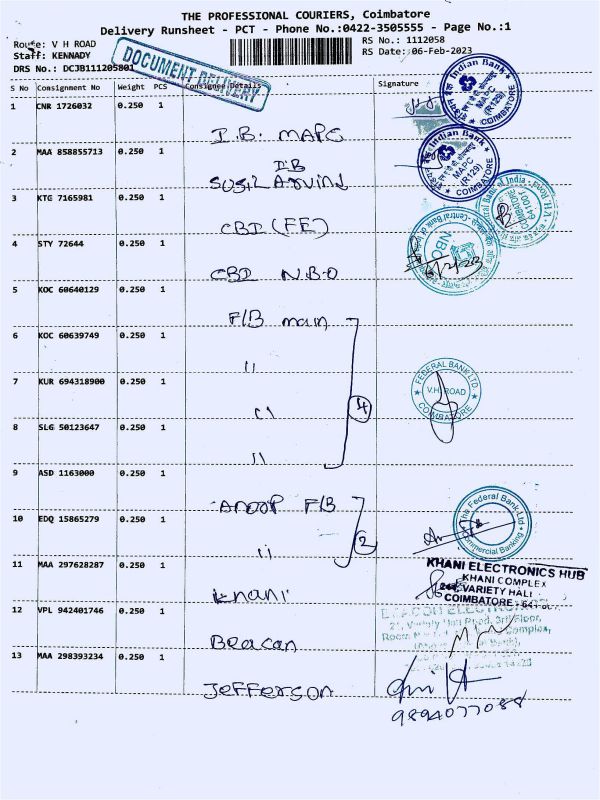 THE PROFESSIONAL COURIERS, Coimbatore
Delivery Runsheet - PCT - Phone No.:0422-3505555 - Page No.:1
Route: V H ROAD
RS No.: 1112058
Staff: KENNADY
RS Date: 06-Feb-2023
DRS No.: DCJB111205801
DOCUMENT DELIVERY
S No Consignment No Weight PCS Consignee Details Signature
1 CNR 1726032 0.250 1 I.B. MAPC
Indian Bank MAPC (R129) COIMBATORE
2 MAA 858855713 0.250 1 I.B
SUSIL ARVIND
Indian Bank MAPC (R129) COIMBATORE
3 KTG 7165981 0.250 1 CBI (FE)
4 STY 72644 0.250 1 CBI N.B.O
Central Bank of India
NBO
6/2/23
5 KOC 60640129 0.250 1 F/B main
6 KOC 60639749 0.250 1 11
7 KUR 694318900 0.250 1 11
4
FEDERAL BANK LTD. V.H. ROAD COIMBATORE
8 SLG 50123647 0.250 1 11
9 ASD 1163000 0.250 1 ANOOP F/B
10 EDQ 15865279 0.250 1 11
2
The Federal Bank Ltd Commercial Banking
11 MAA 297628287 0.250 1 Khani
KHANI ELECTRONICS HUB
KHANI COMPLEX
VARIETY HALL
COIMBATORE
12 VPL 942401746 0.250 1 Beacan
Floor,
Complex,
13 MAA 298393234 0.250 1 Jefferson
9894077088